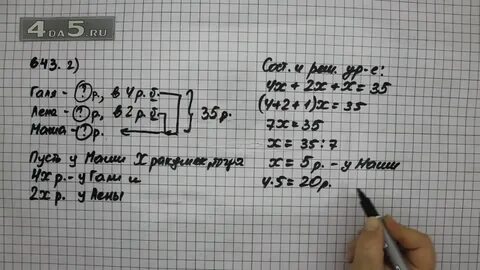 4DA5.RU
643. 2)
Галя - ? р., в 4 р. б
Лена - ? р., в 2 р. б
Маша - ? р.
35 р.
Пусть у Маши x ракушек, тогда
4x р. - у Гали и
2x р. у Лены
Сост. и реш. ур-е:
4x + 2x + x = 35
(4+2+1)x = 35
7x = 35
x = 35 : 7
x = 5 р. - у Маши
4·5 = 20 р.